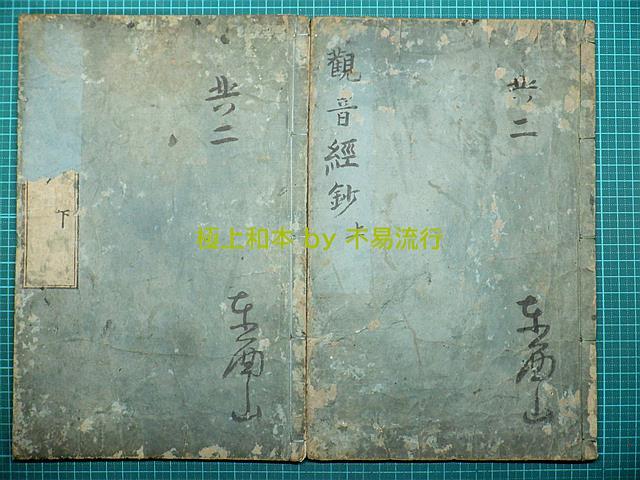 觀音經鈔 上
共二
东西山
下
共二
东西山
極上和本 by 不易流行